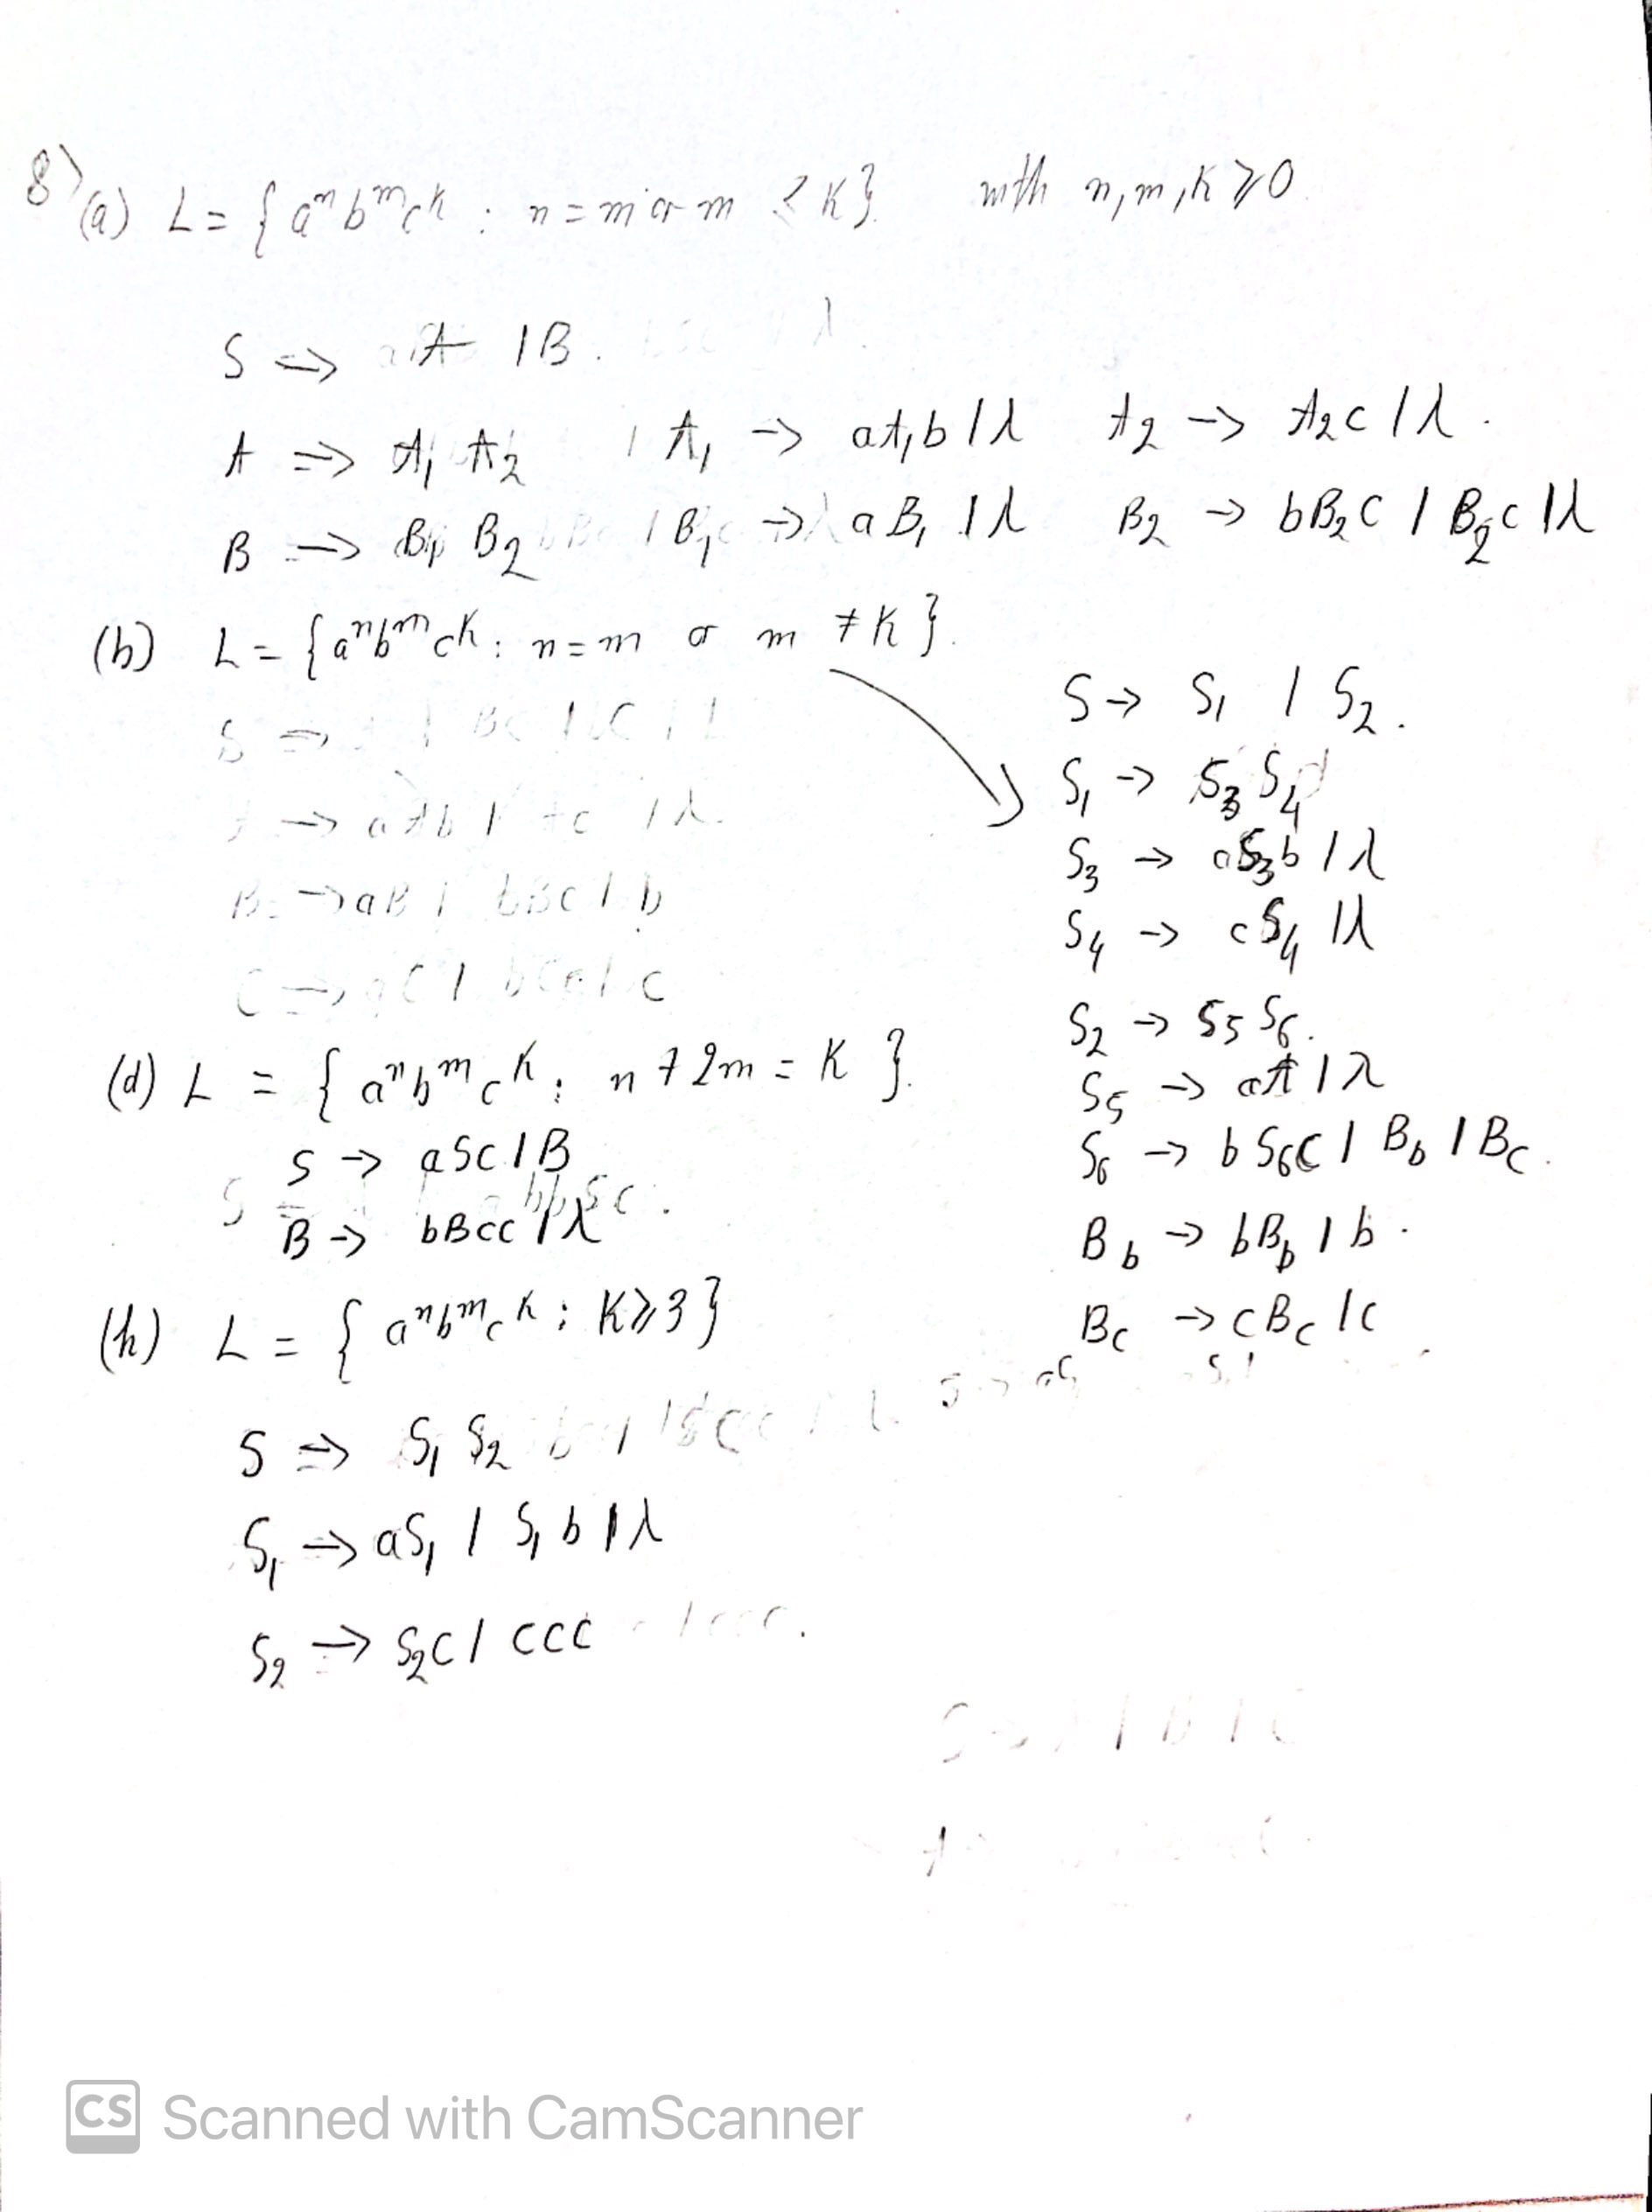 8) (a) L = { aⁿbᵐcᵏ : n = m or m ≤ K } with n, m, K ≥ 0.
S => A | B.
A => A₁ A₂ | A₁ -> aA₁b | λ A₂ -> A₂c | λ.
B -> B₁ B₂ | B₁ -> aB₁ | λ B₂ -> bB₂C | B₂c | λ
(b) L = { aⁿbᵐcᵏ : n = m or m ≠ K }.
S -> S₁ | S₂.
S₁ -> S₃ S₄
S₃ -> aS₃b | λ
S₄ -> cS₄ | λ
S₂ -> S₅ S₆.
S₅ -> aA | λ
S₆ -> bS₆C | B_b | B_c.
B_b -> bB_b | b.
B_c -> cB_c | c
(d) L = { aⁿbᵐcᵏ : n + 2m = K }.
S -> aSc | B
B -> bBcc | λ
(h) L = { aⁿbᵐcᵏ : K ≥ 3 }
S => S₁ S₂
S₁ => aS₁ | S₁b | λ
S₂ => S₂C | ccc
CS Scanned with CamScanner